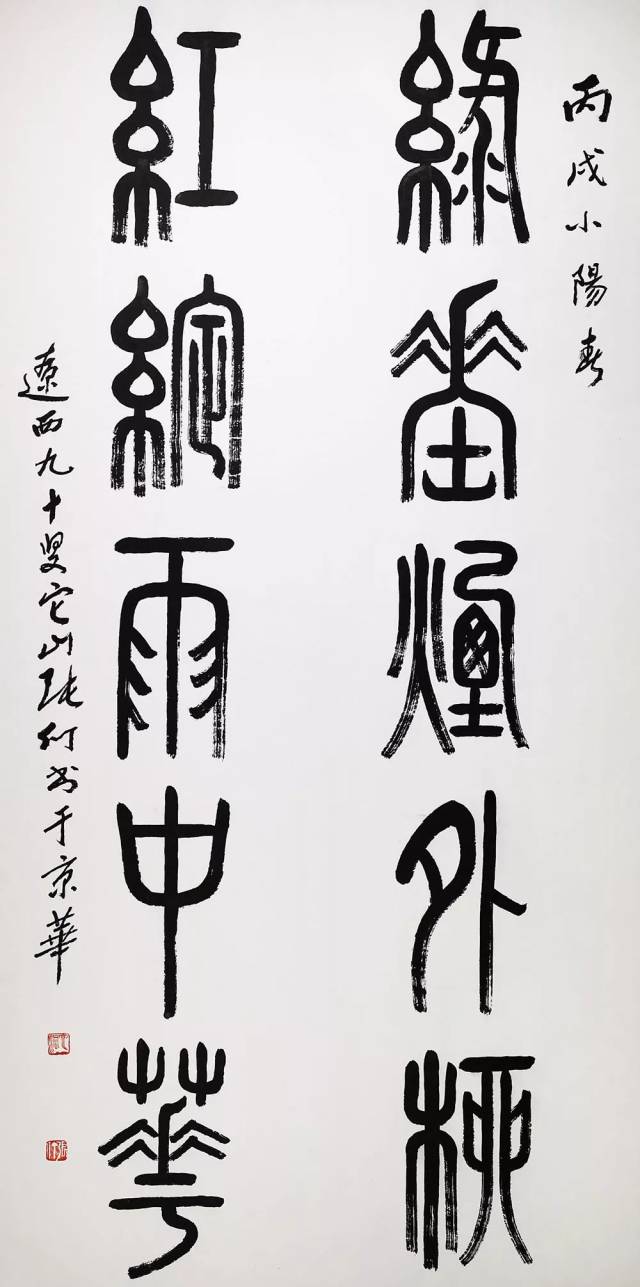 丙戌小陽春
綠垂煙外柳
紅綻雨中華
遼西九十叟它山張仃書于京華